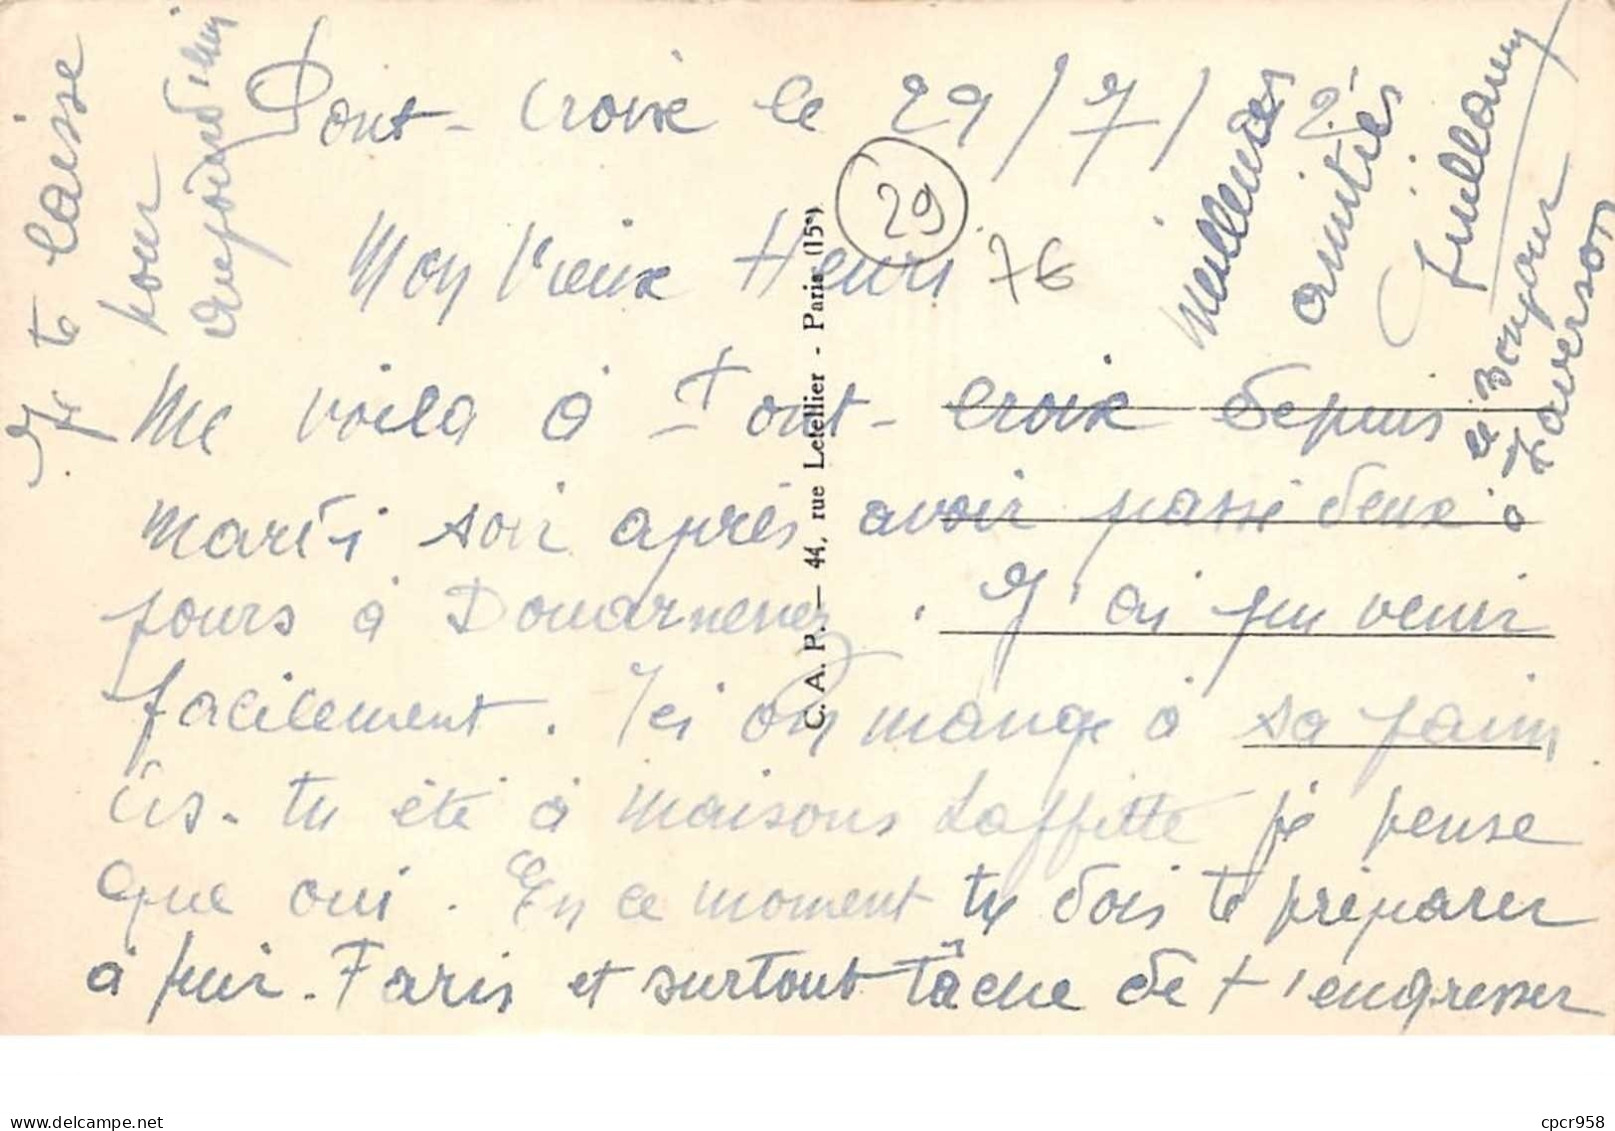 Pont-Croix le 29/7/
Mon Vieux Henri
29
76
Me voila à Pont-Croix depuis
mardi soir après avoir passé deux
jours à Douarnenez. J'ai pu venir
facilement. Ici on mange à sa faim
Es-tu été à Maisons Laffitte je pense
que oui. En ce moment tu dois te préparer
à fuir Paris et surtout tâche de t'engresser
Je te laisse
pour
aujourd'hui
Meilleures
amitiés
le Bonjour
à
C. A. P. — 44, rue Letellier - Paris (15e)
cpcr958